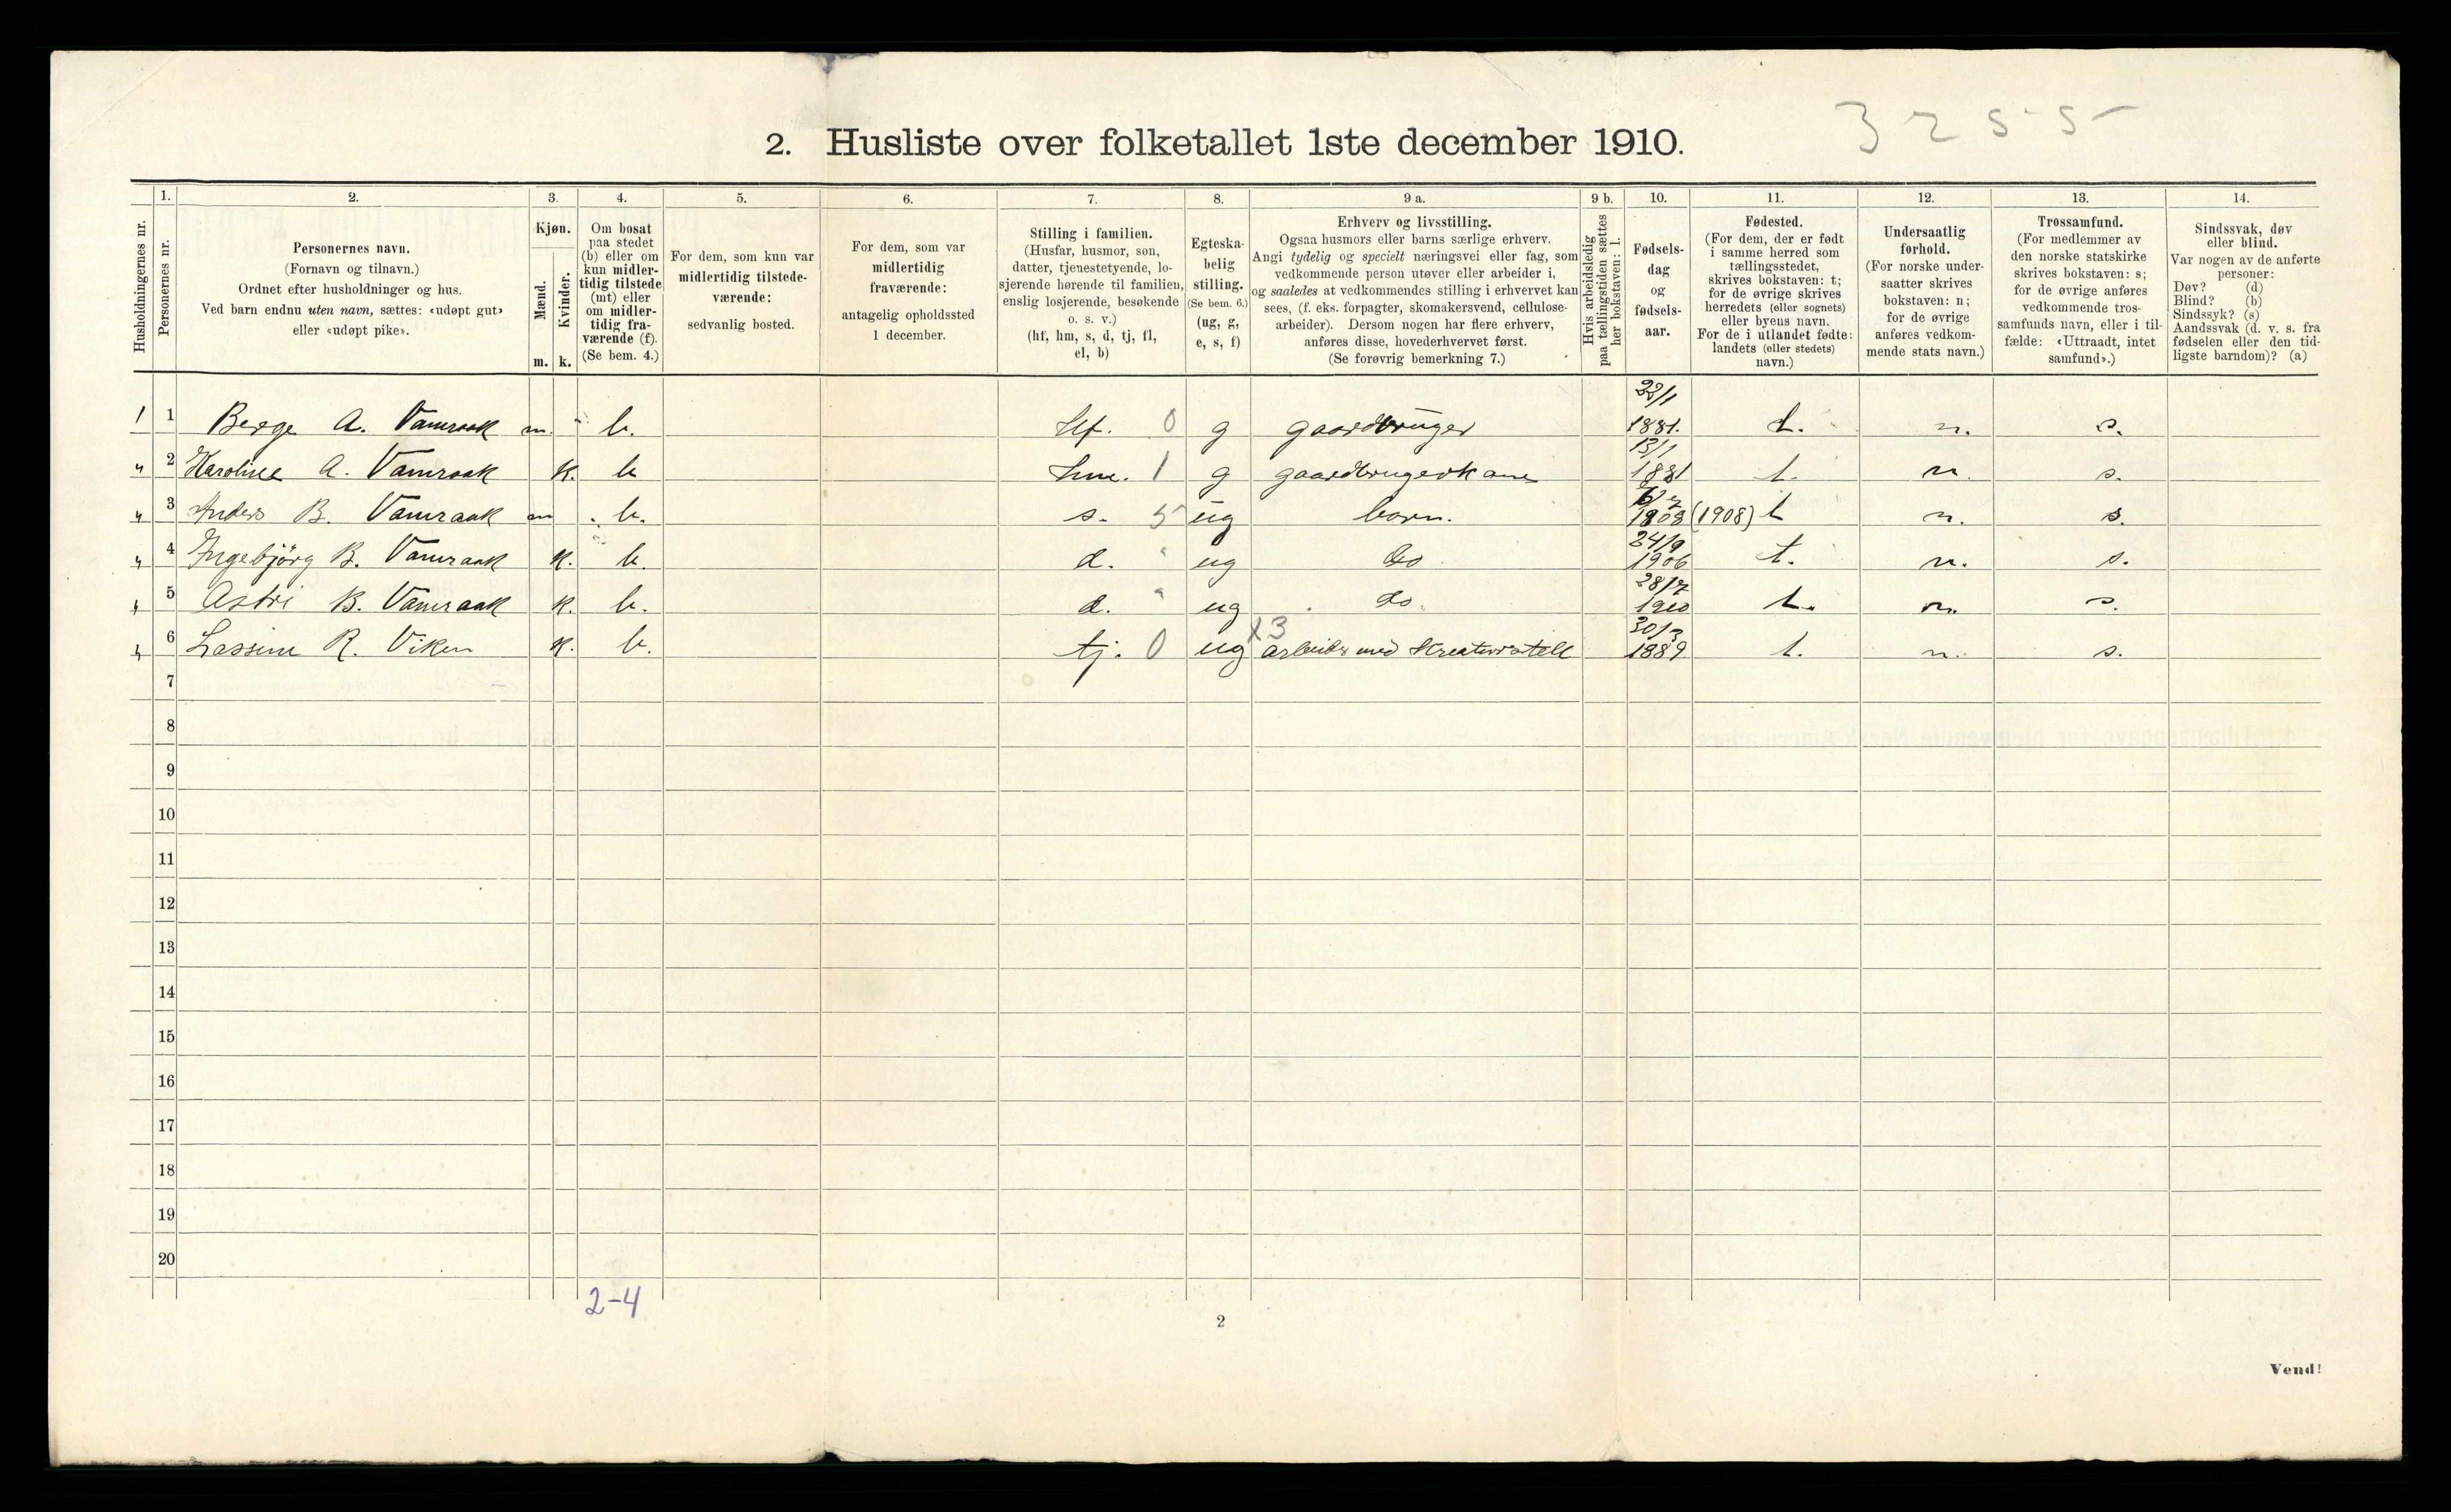 3255
2. Husliste over folketallet 1ste december 1910.
1. 2. 3. 4. 5. 6. 7. 8. 9 a. 9 b. 10. 11. 12. 13. 14.
Husholdningernes nr.
Personernes nr.
Personernes navn.
(Fornavn og tilnavn.)
Ordnet efter husholdninger og hus.
Ved barn endnu uten navn, sættes: «udøpt gut»
eller «udøpt pike».
Kjøn.
Mænd.
Kvinder.
m. k.
Om bosat
paa stedet
(b) eller om
kun midler-
tidig tilstede
(mt) eller
om midler-
tidig fra-
værende (f).
(Se bem. 4.)
For dem, som kun var
midlertidig tilstede-
værende:
sedvanlig bosted.
For dem, som var
midlertidig
fraværende:
antagelig opholdssted
1 december.
Stilling i familien.
(Husfar, husmor, søn,
datter, tjenestetyende, lo-
sjerende hørende til familien,
enslig losjerende, besøkende
o. s. v.)
(hf, hm, s, d, tj, fl,
el, b)
Egteska-
belig
stilling.
(Se bem. 6.)
(ug, g,
e, s, f)
Erhverv og livsstilling.
Ogsaa husmors eller barns særlige erhverv.
Angi tydelig og specielt næringsvei eller fag, som
vedkommende person utøver eller arbeider i,
og saaledes at vedkommendes stilling i erhvervet kan
sees, (f. eks. forpagter, skomakersvend, cellulose-
arbeider). Dersom nogen har flere erhverv,
anføres disse, hovederhvervet først.
(Se forøvrig bemerkning 7.)
Hvis arbeidsledig
paa tællingstiden sættes
her bokstaven: l.
Fødsels-
dag
og
fødsels-
aar.
Fødested.
(For dem, der er født
i samme herred som
tællingsstedet,
skrives bokstaven: t;
for de øvrige skrives
herredets (eller sognets)
eller byens navn.
For de i utlandet fødte:
landets (eller stedets)
navn.)
Undersaatlig
forhold.
(For norske under-
saatter skrives
bokstaven: n;
for de øvrige
anføres vedkom-
mende stats navn.)
Trossamfund.
(For medlemmer av
den norske statskirke
skrives bokstaven: s;
for de øvrige anføres
vedkommende tros-
samfunds navn, eller i til-
fælde: «Uttraadt, intet
samfund».)
Sindssvak, døv
eller blind.
Var nogen av de anførte
personer:
Døv? (d)
Blind? (b)
Sindssyk? (s)
Aandssvak (d. v. s. fra
fødselen eller den tid-
ligste barndom)? (a)
1 1 Berge A. Vamraak m. b. hf. 0 g gaardbruger 1881. t. n. s.
" 2 Karoline A. Vamraak k. b hm. 1 g gaardbrugerkone 13/1 1881 t. n. s.
" 3 Anders B. Vamraak m b. s. 5 ug barn. 1908 (1908) t n. s.
" 4 Ingebjörg B. Vamraak k. b. d. " ug do 24/9 1906 t. n. s.
" 5 Astri B. Vamraak k. b. d. " ug do. 1910 t. n. s.
" 6 Lassine R. Viken k. b. tj. 0 ug x3 arbeider med Kreaturstell 30/3 1889 t. n. s.
7
8
9
10
11
12
13
14
15
16
17
18
19
20
2-4
2
Vend!